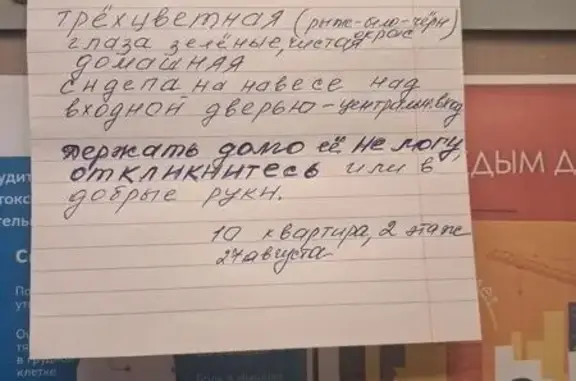 трёхцветная (рыже-бело-чёрн)
глаза зелёные, чистая окрас
домашняя
сидела на навесе над
входной дверью-центральн. вход
держать долго её не могу,
откликнитесь или в
добрые руки.
10 квартира, 2 этаж
27 августа
ДЫМ
С
в грудной
клетке